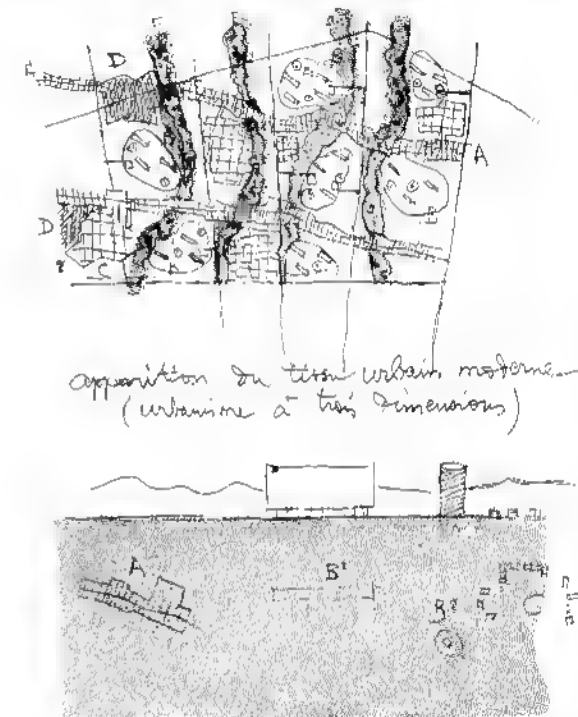 D
A
D
apparition du tissu urbain moderne
(urbanisme à trois dimensions)
A
B¹
B²